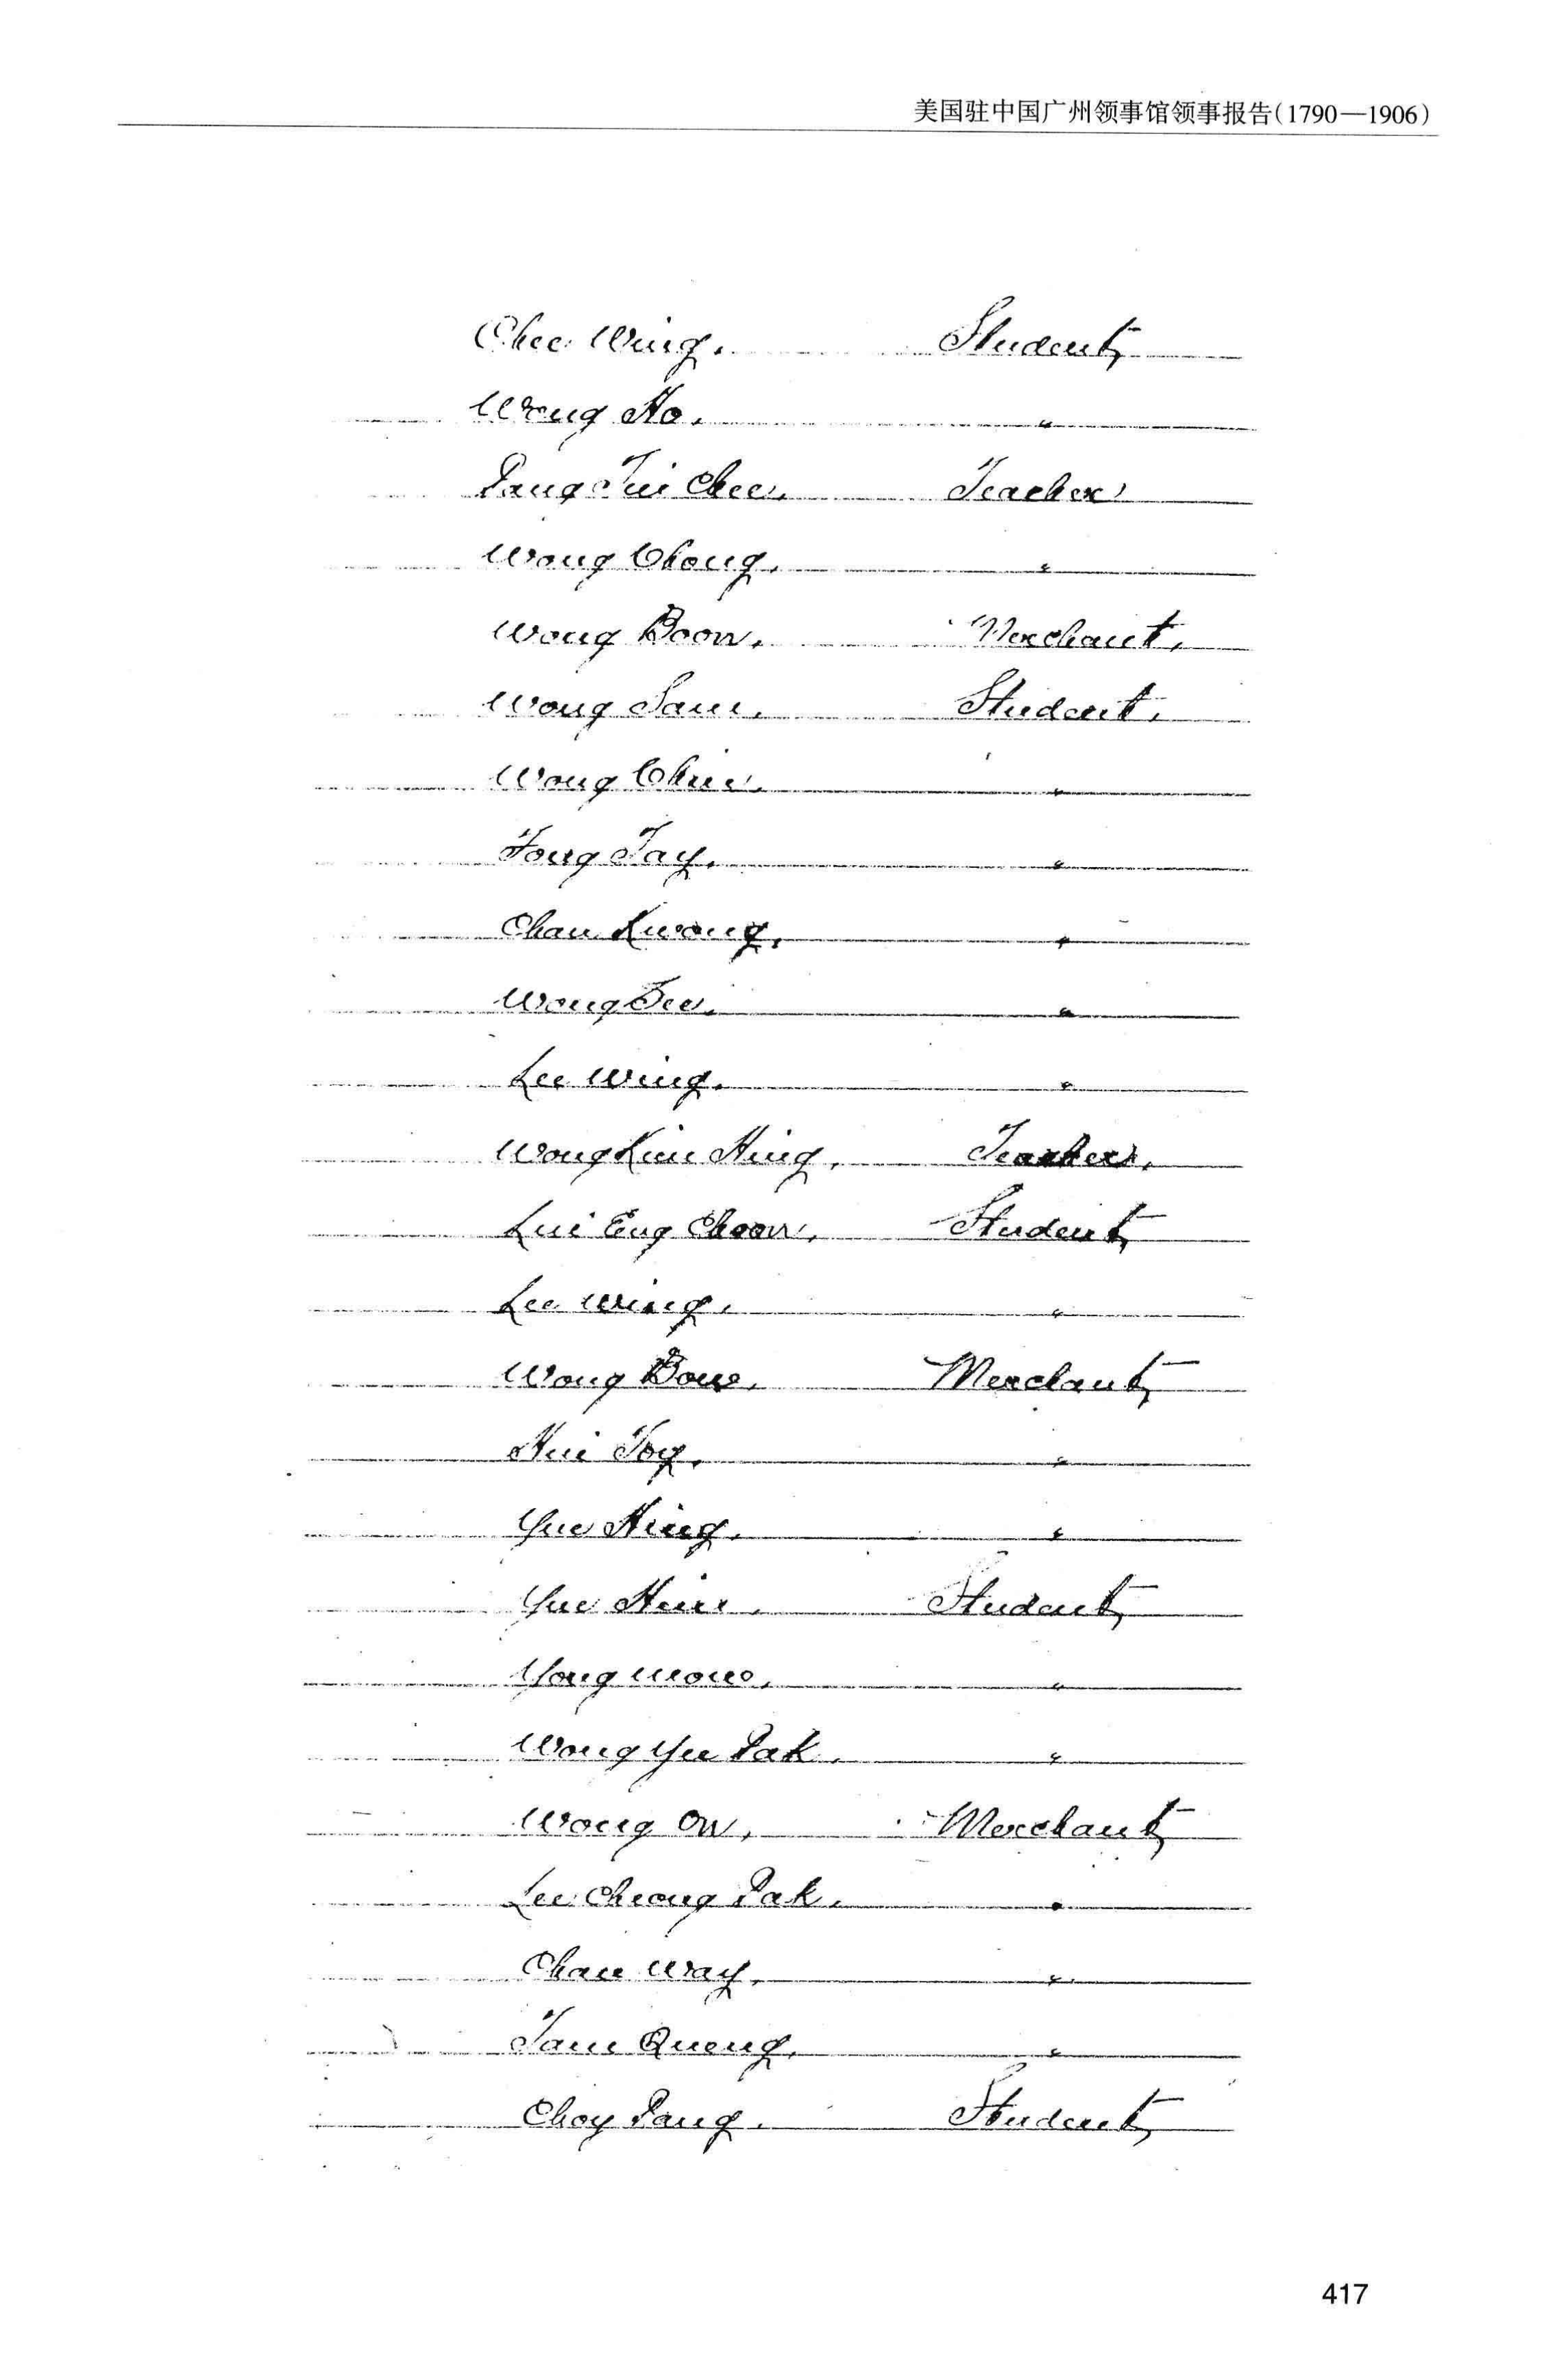 美国驻中国广州领事馆领事报告(1790—1906)
Chee Wing. Student,
Wong Ho. "
Pang Tui Chee. Teacher
Wong Chong. "
Wong Boon. Merchant,
Wong Sam. Student.
Wong Chun. "
Fong Tay. "
Chan Kwong. "
Wong See. "
Lee Wing. "
Wong Kim Hing. Teacher.
Lui Eng Choon. Student,
Lee Wing. "
Wong Bow. Merchant,
Hui Toy. "
Yue Hing. "
Yue Him. Student,
Yong Mow. "
Wong Yee Pak. "
Wong On. Merchant,
Lee Cheong Pak. "
Chan Way. "
Tam Quong. "
Choy Pang. Student,
417